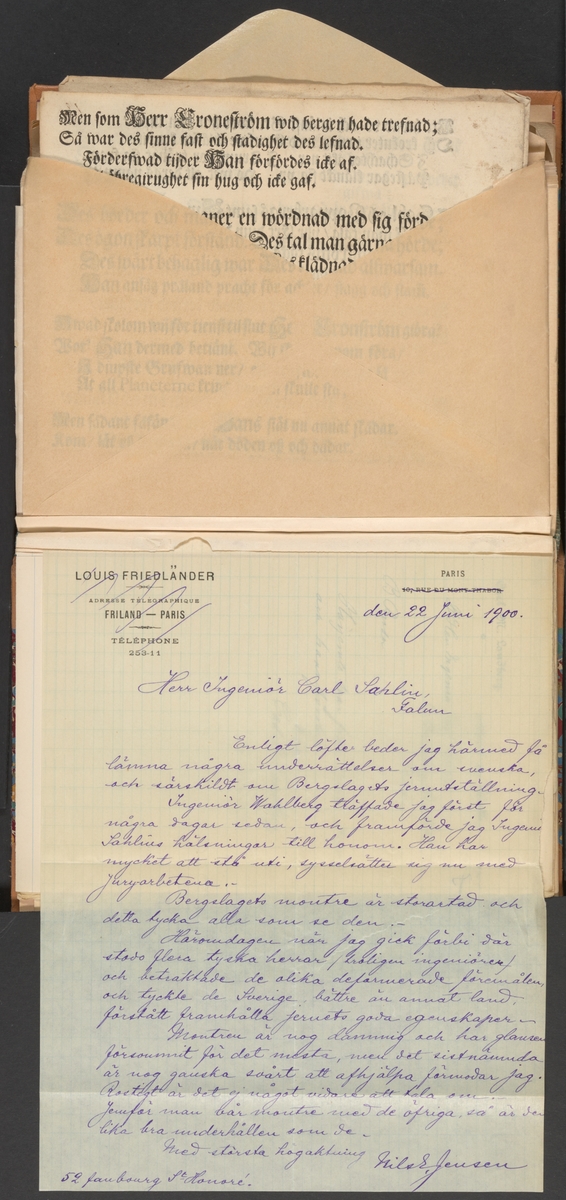 Men som Herr Croneström wid bergen hade trefnad;
Så war des sinne fast och stadighet des lefnad.
Förderfwad tijder Han förfördes icke af.
girughet sin hug och icke gaf.
en wördnad med sig förd
Des tal man gärn
klädnad
LOUIS FRIEDLÄNDER
ADRESSE TÉLÉGRAPHIQUE
FRILAND — PARIS
TÉLÉPHONE
253-11
PARIS
10, RUE DU MONT-THABOR
den 22 Juni 1900.
Herr Ingeniör Carl Sahlin,
Falun
Enligt löfte beder jag härmed få
lämna några underrättelser om svenska,
och särskildt om Bergslagets jernutställning.
Ingeniör Wahlberg träffade jag först för
några dagar sedan, och framförde jag Ingeniör
Sahlins hälsningar till honom. Han har
mycket att stå uti, sysselsätter sig nu med
Juryarbetena.-
Bergslagets montre är storartad och
detta tycka alla som se den.-
Häromdagen när jag gick förbi där
stodo flera tyska herrar (troligen ingeniörer)
och betraktade de olika deformerade föremålen,
och tyckte de Sverige bättre än annat land
förstått framhålla jernets goda egenskaper.-
Montren är nog dammig och har glansen
försvunnit för det mesta, men det sistnämnda
är nog ganska svårt att afhjälpa förmodar jag.
Rostigt är det ej något vidare att tala om.-
Jemför man vår montre med de öfriga, så är den
lika bra underhållen som de.-
Med största högaktning
Nils E. Jensen
52 faubourg St Honoré.